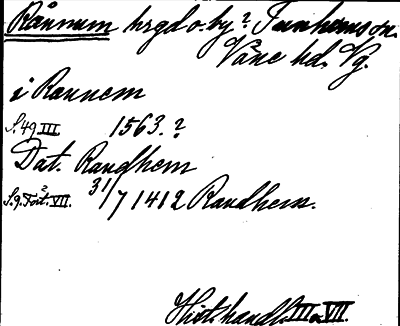 Rånnum hrgd o. by? Tunhems sn.
Väne hd. Vg.
i Rannem
S. 49 III 1563. ?
Dat. Randhem
S. 9. Fört. VII. 31/7 1412 Randhem.
Hist. handl. III o. VII.